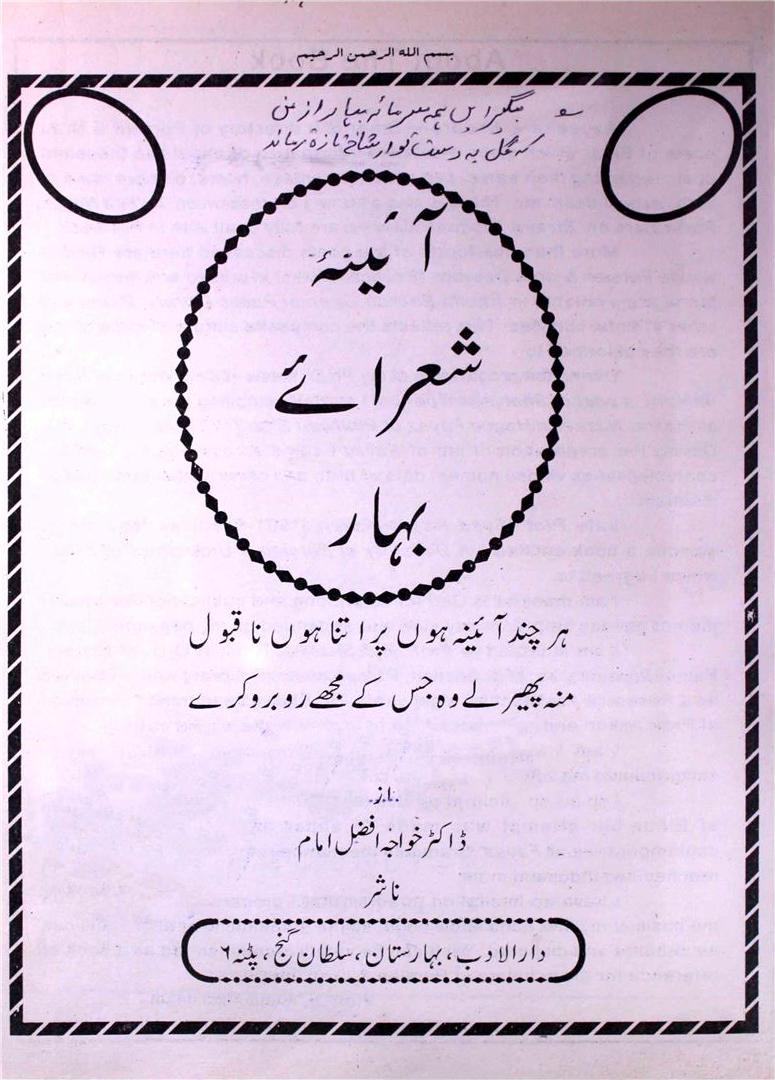 بسم اللہ الرحمن الرحیم
منگر این ہمہ سرمایۂ بہار از من
کہ گل بہ دست تو از شاخ تازہ تر ماند
آئینہ
شعرائے
بہار
ہر چند آئینہ ہوں پر اتنا ہوں ناقبول
منہ پھیر لے وہ جس کے مجھے روبرو کرے
از
ڈاکٹر خواجہ افضل امام
ناشر
دارالادب، بہارستان، سلطان گنج، پٹنہ ۶